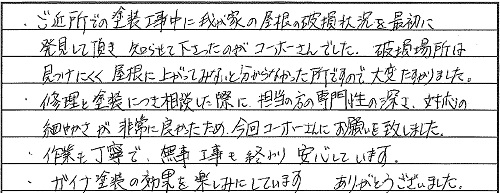 ・ご近所での塗装工事中に我が家の屋根の破損状況を最初に
発見して頂き知らせて下さったのがコーホーさんでした。破損場所は
見つけにくく屋根に上がってみないと分からなかった所ですので大変たすかりました。
・修理と塗装につき相談した際に、担当の方の専門性の深さ、対応の
細やかさが非常に良かったため、今回コーホーさんにお願いを致しました。
・作業も丁寧で、無事工事も終わり安心しています。
・ガイナ塗装の効果を楽しみにしています ありがとうございました。